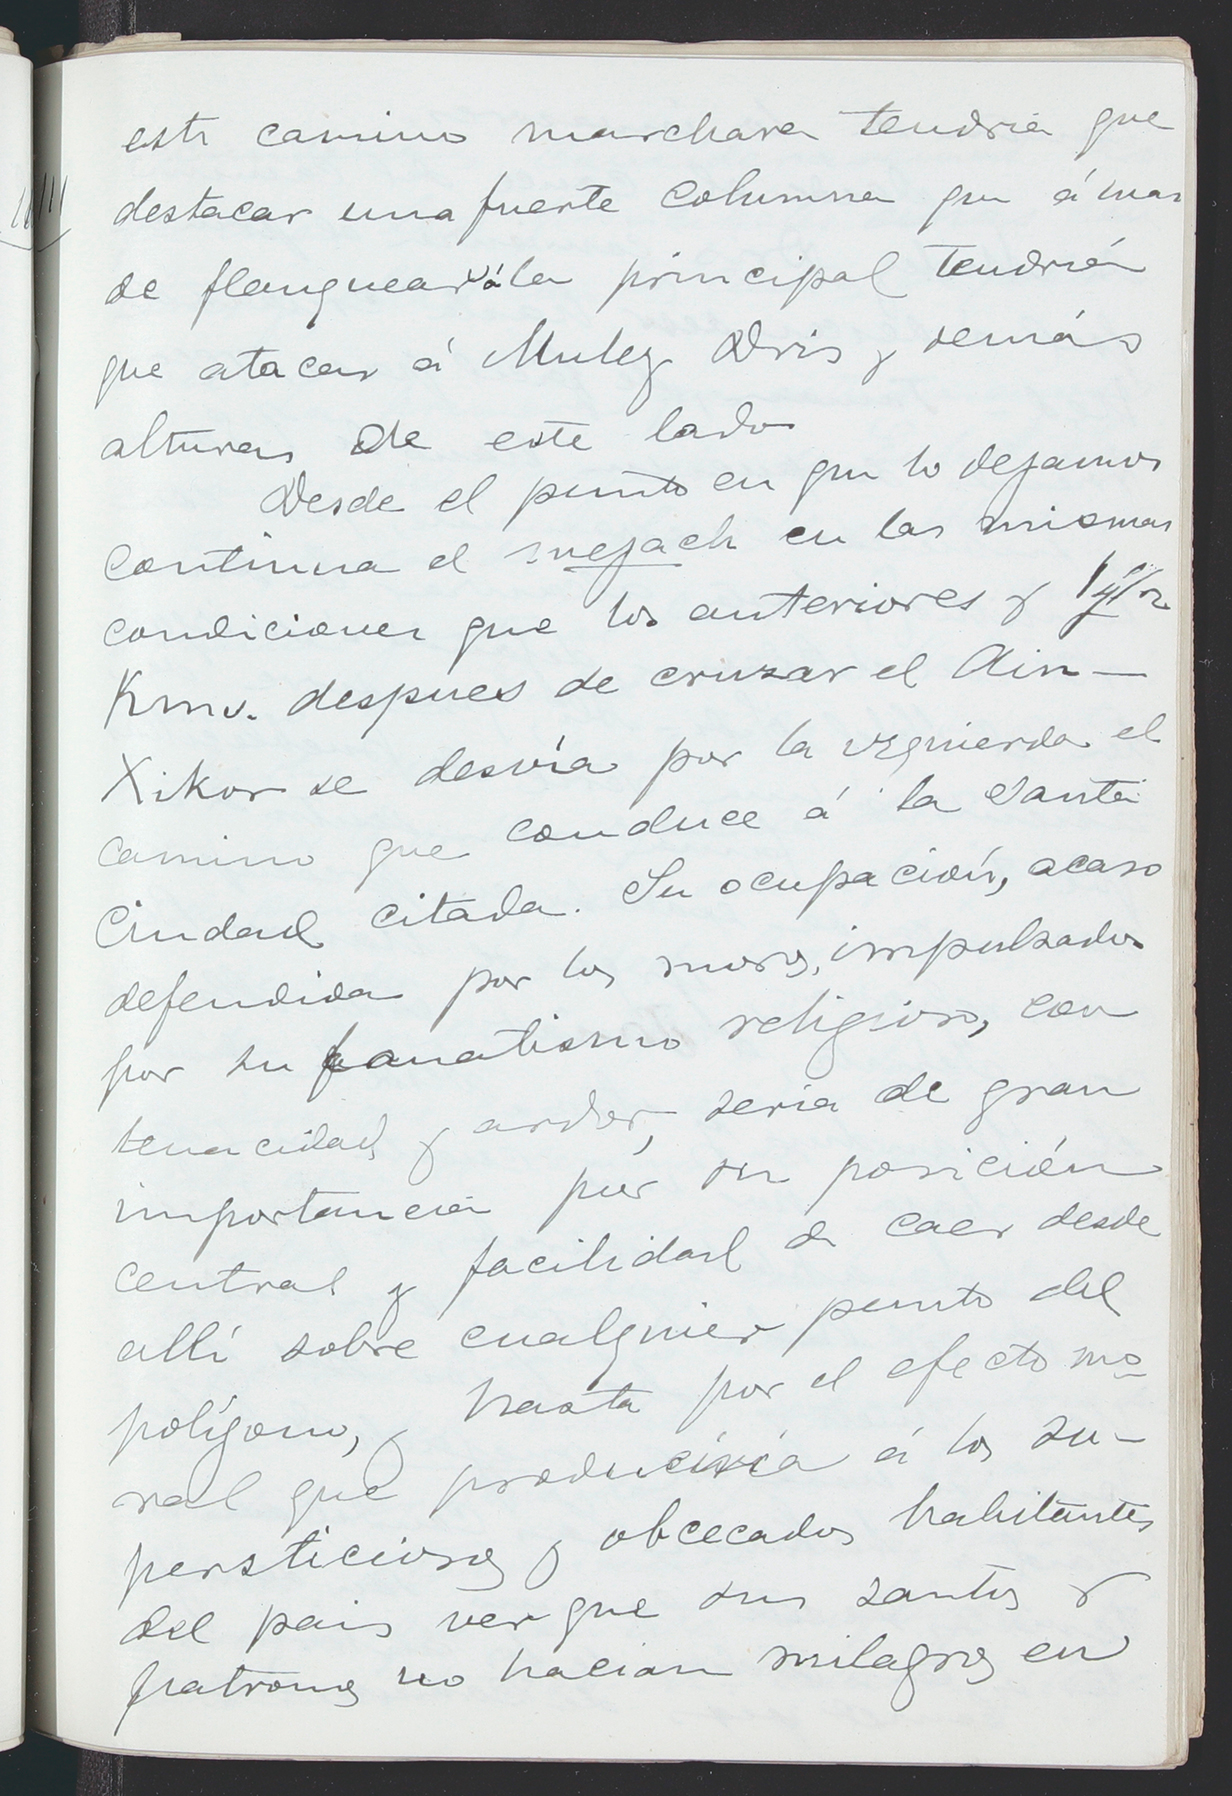 este camino marchara tendria que
destacar una fuerte columna que á mas
de flanquear á la principal tendría
que atacar á Muley Dris y demás
alturas de este lado
Desde el punto en que lo dejamos
continua el mejach en las mismas
condiciones que los anteriores y 1 y 1/2
Kmv. despues de cruzar el Ain-
Xikor se desvía por la izquierda el
camino que conduce á la Santa
Ciudad citada. Su ocupación, acaso
defendida por los moros, impulsados
por su fanatismo religioso, con
tenacidad y ardor, seria de gran
importancia por su posición
central y facilidad de caer desde
allí sobre cualquier punto del
polígono, y hasta por el efecto mo-
ral que produciría á los su-
persticiosos y obcecados habitantes
del pais ver que sus santos y
patronos no hacian milagros en